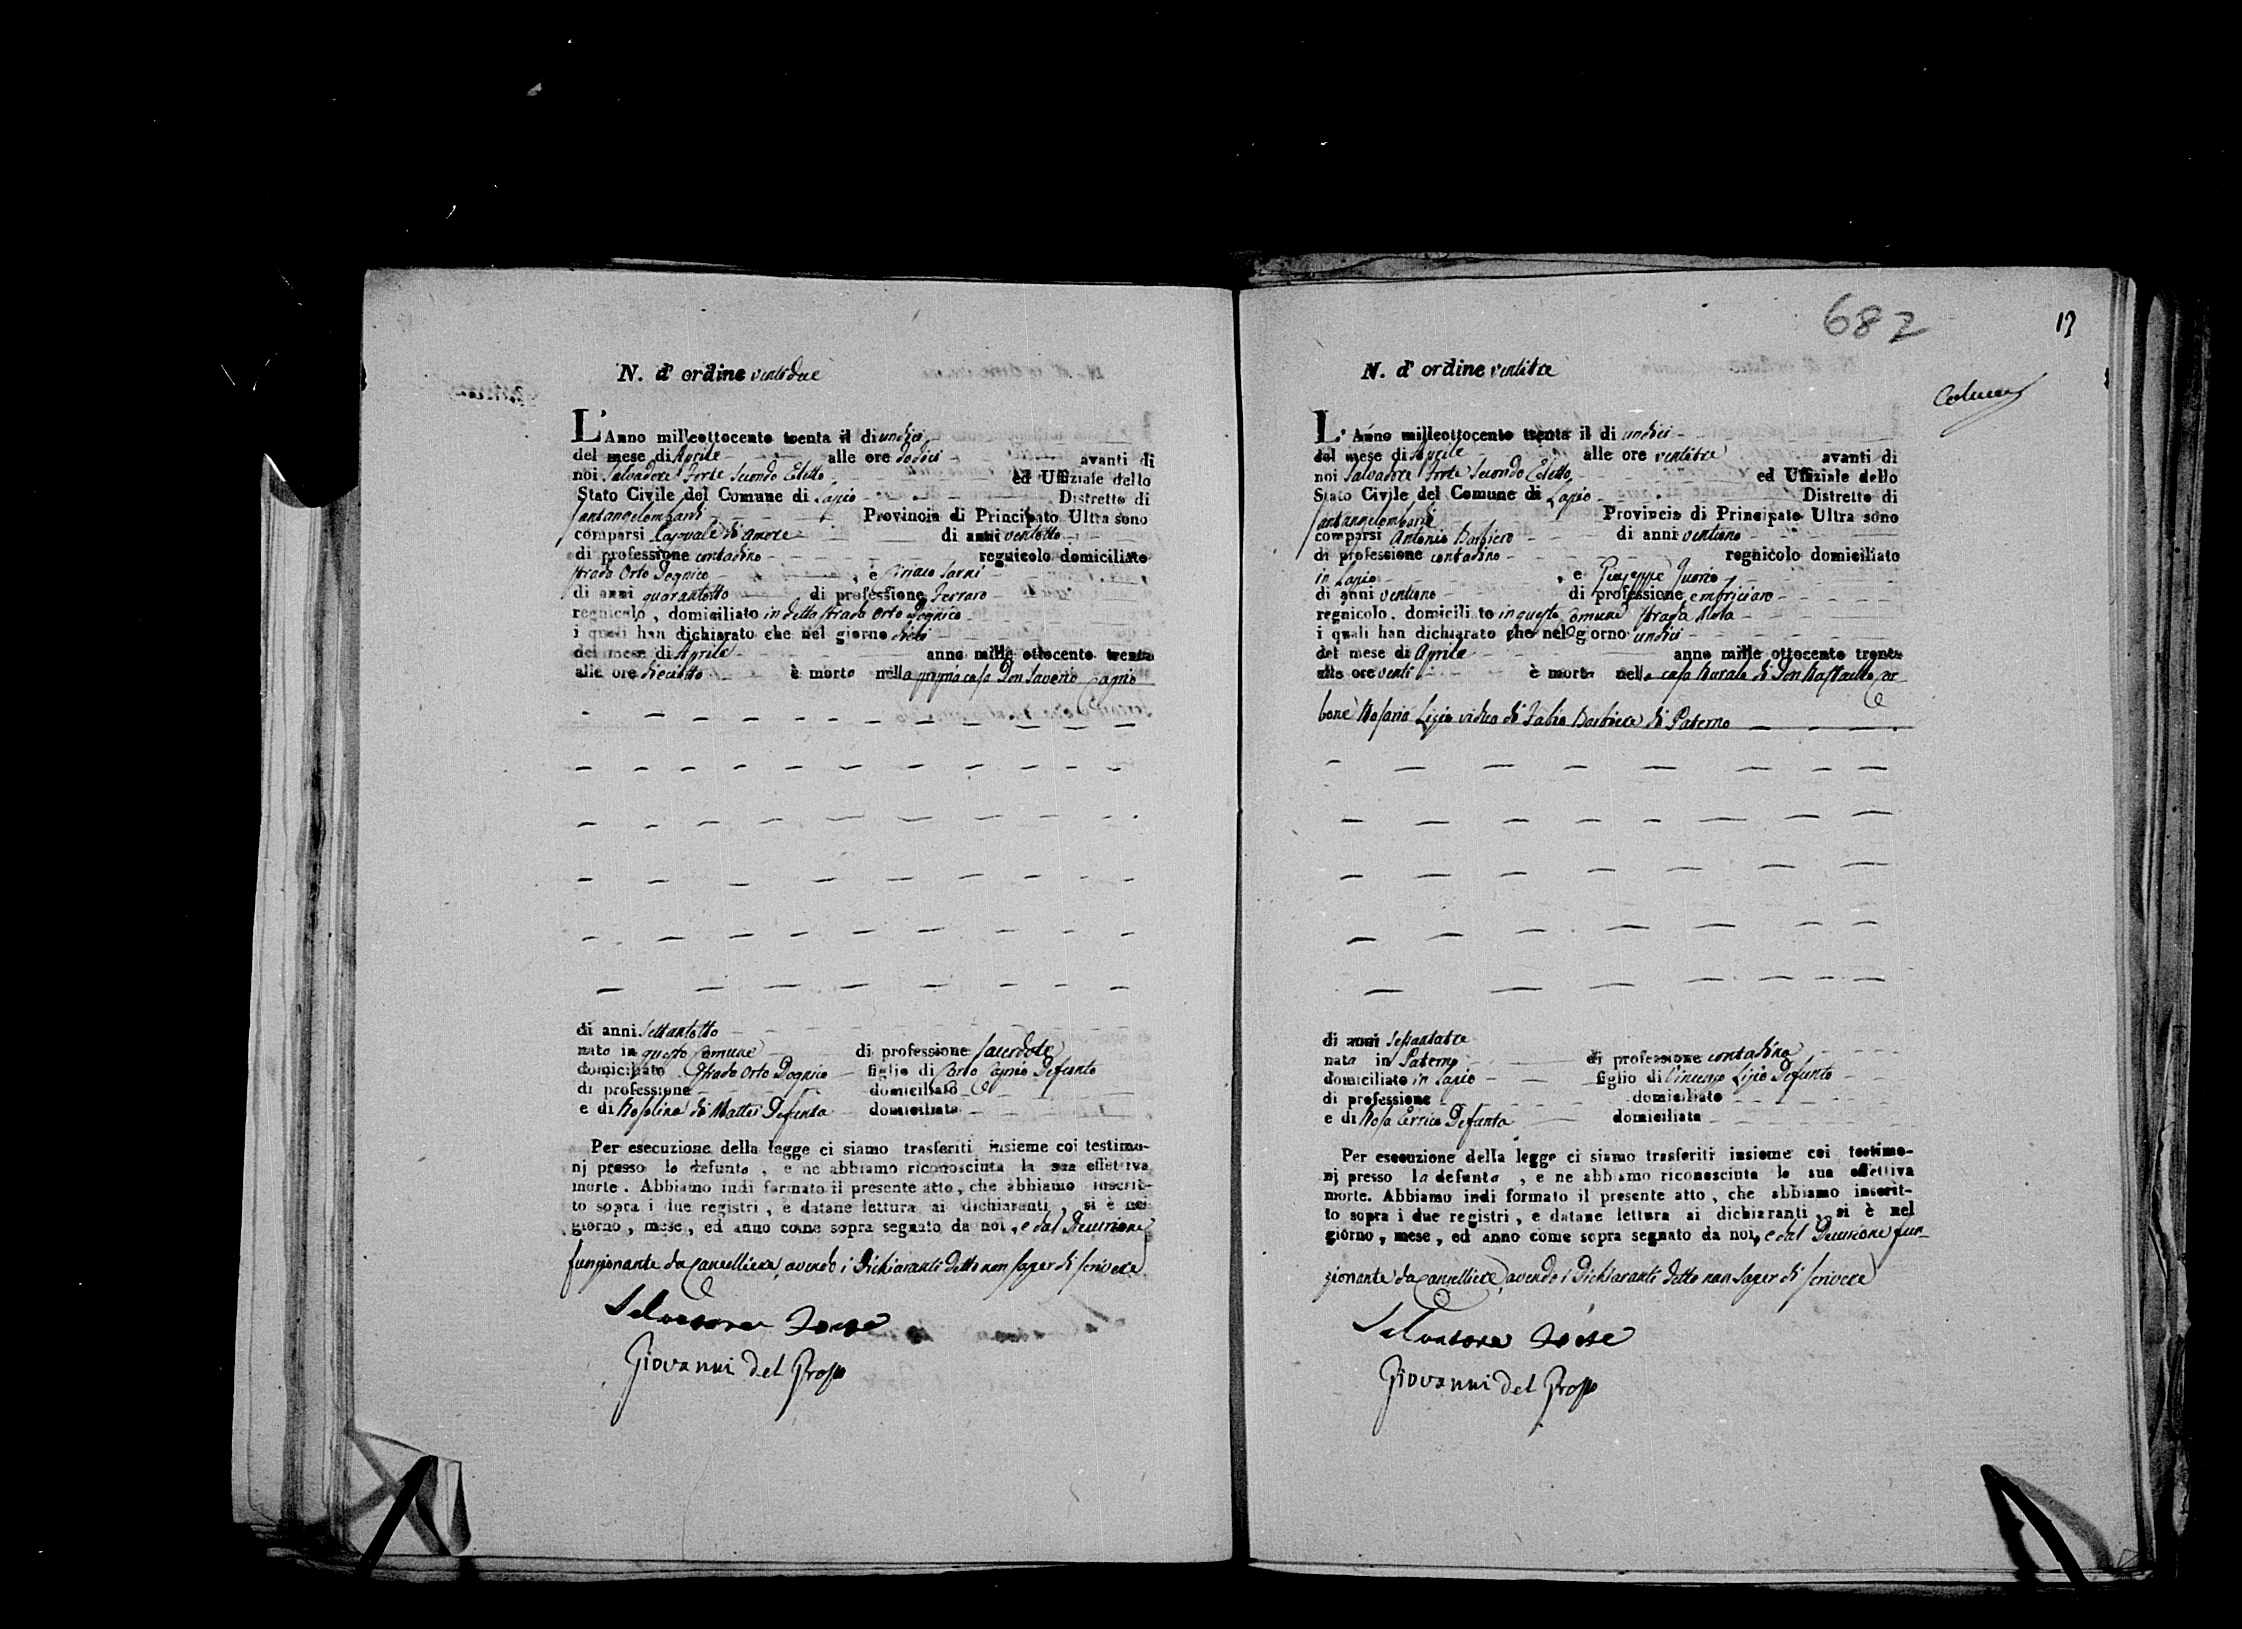 N. d' ordine ventidue
L'Anno milleottocento trenta il di undici
del mese di Aprile alle ore dodici avanti di
noi Salvadore Forte Secondo Eletto ed Uffiziale dello
Stato Civile del Comune di Lapio Distretto di
Santangelombardi Provincia di Principato Ultra sono
comparsi Pasquale di Amore di anni ventotto
di professione contadino regnicolo domiciliato
strada Orto Dognico, e Ciriaco Sarni
di anni quarantotto di professione Ferraro
regnicolo, domiciliato in detta strada Orto Dognico
i quali han dichiarato che nel giorno dieci
del mese di Aprile anno mille ottocento trenta
alle ore dieciotto è morto nella propria casa Don Saverio Capnio
di anni Settantotto
nato in questo Comune di professione Sacerdote
domiciliato Strada Orto Dognico figlio di Carlo Defunto
di professione domiciliato
e di Rosolina di Matteo Defunta domiciliata
Per esecuzione della legge ci siamo trasferiti insieme coi testimo-
nj presso lo defunto, e ne abbiamo riconosciuta la sua effettiva
morte. Abbiamo indi formato il presente atto, che abbiamo inscrit-
to sopra i due registri, e datane lettura ai dichiaranti, si è nel
giorno, mese, ed anno come sopra segnato da noi, e dal Decurione
funzionante da Cancelliere, avendo i Dichiaranti detto non saper di scrivere
Salvatore Forte
Giovanni del Prosto
682
13
N. d' ordine ventitre
L'Anno milleottocento trenta il di undici
del mese di Aprile alle ore ventitre avanti di
noi Salvadore Forte Secondo Eletto ed Uffiziale dello
Stato Civile del Comune di Lapio Distretto di
Santangelombardi Provincia di Principato Ultra sono
comparsi Antonio Barbiero di anni ventiuno
di professione contadino regnicolo domiciliato
in Lapio, e Giuseppe Iuorio
di anni ventiuno di professione embriciaro
regnicolo, domiciliato in questo Comune strada Mola
i quali han dichiarato che nel giorno undici
del mese di Aprile anno mille ottocento trenta
alle ore venti è morta nella casa Rurale di Don Raffaele Car-
bone Rosaria Lizio vidua di Fabio Barbiere di Paterno
di anni Sessantatre
nata in Paterno di professione contadina
domiciliato in Lapio figlio di Vincenzo Lizio Defunto
di professione domiciliato
e di Rosa Defunta domiciliata
Per esecuzione della legge ci siamo trasferiti insieme coi testimo-
nj presso la defunta, e ne abbiamo riconosciuta la sua effettiva
morte. Abbiamo indi formato il presente atto, che abbiamo inscrit-
to sopra i due registri, e datane lettura ai dichiaranti, si è nel
giorno, mese, ed anno come sopra segnato da noi, e dal Decurione fun-
zionante da Cancelliere, avendo i Dichiaranti detto non saper di scrivere
Salvatore Forte
Giovanni del Prosto